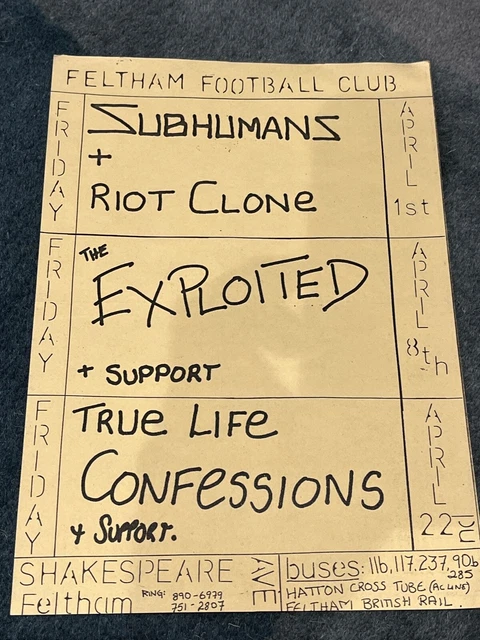 FELTHAM FOOTBALL CLUB
FRIDAY
SUBHUMANS
+
RIOT CLONE
APRIL
1st
FRIDAY
THE
EXPLOITED
+ SUPPORT
APRIL
8th
FRIDAY
TRUE LIFE
CONFESSIONS
+ SUPPORT.
APRIL
22nd
SHAKESPEARE AVE
Feltham
RING: 890-6979
751-2807
buses: 116,117,237,90b
285
HATTON CROSS TUBE (AC LINE)
FELTHAM BRITISH RAIL.